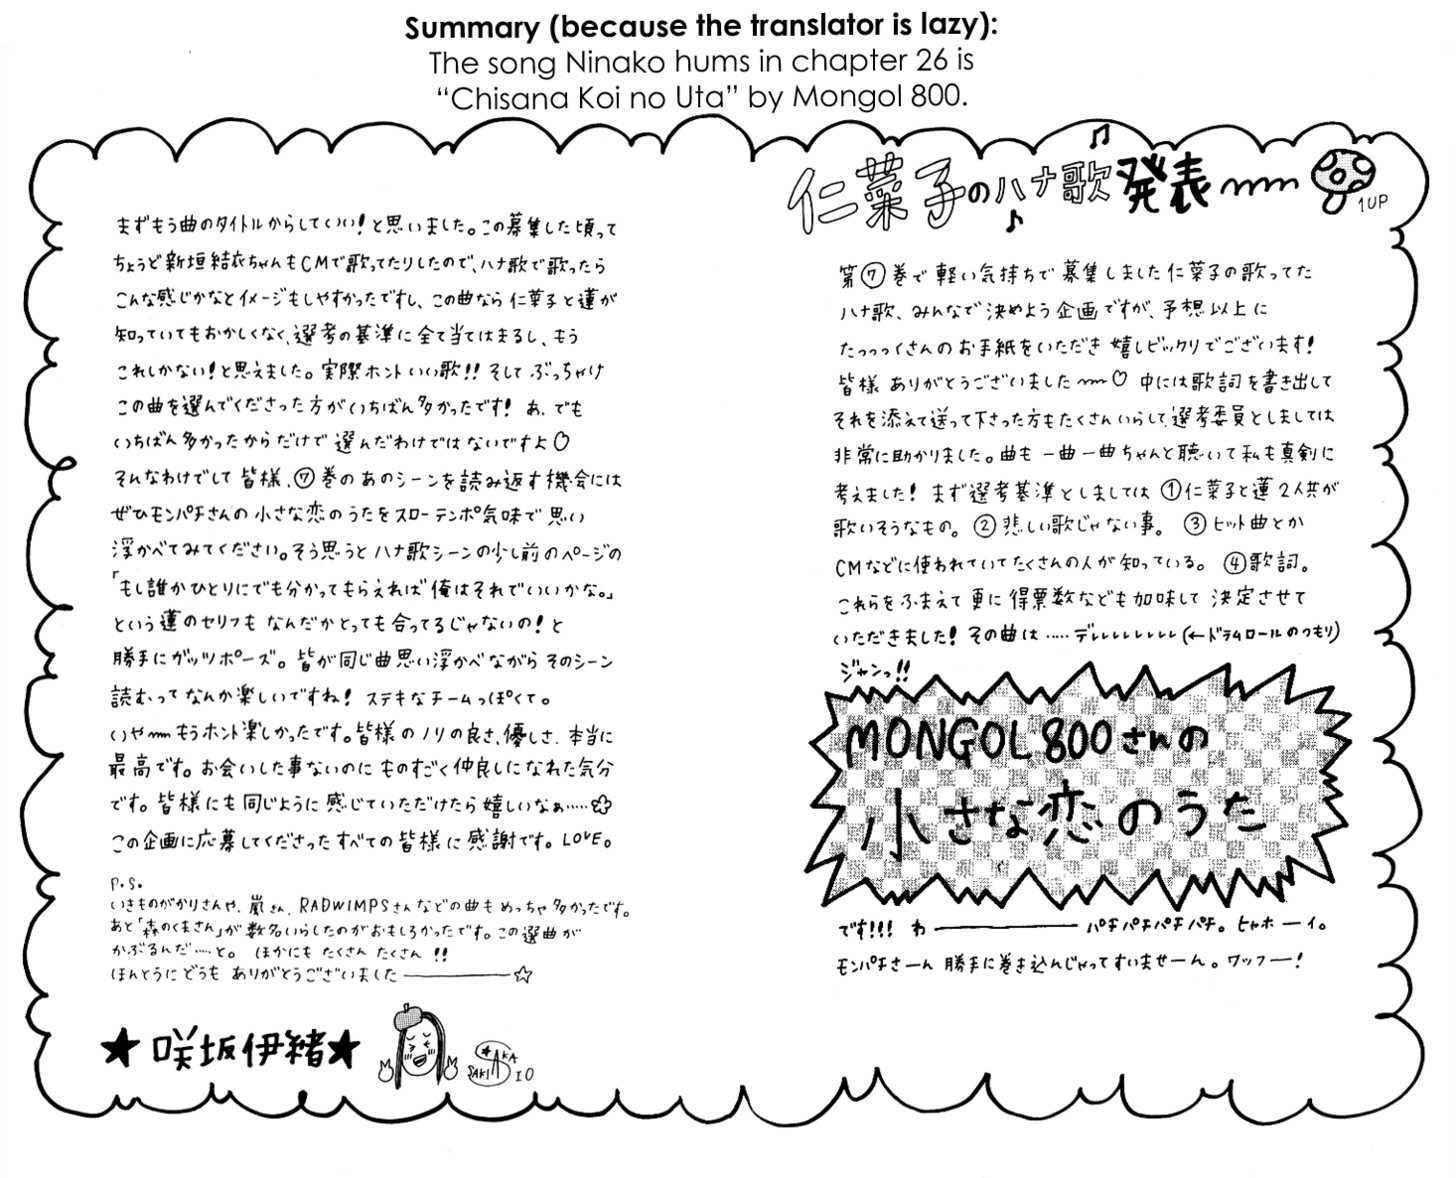 Summary (because the translator is lazy):
The song Ninako hums in chapter 26 is
“Chisana Koi no Uta” by Mongol 800.
仁菜子のハナ歌発表
1UP
第⑦巻で軽い気持ちで募集しました仁菜子の歌ってた
ハナ歌、みんなで決めよう企画ですが、予想以上に
たっっっくさんのお手紙をいただき嬉しビックリでございます!
皆様ありがとうございました〜〜♡ 中には歌詞を書き出して
それを添えて送って下さった方もたくさんいらして、選考委員としましては
非常に助かりました。曲も一曲一曲ちゃんと聴いて私も真剣に
考えました! まず選考基準としましては ①仁菜子と蓮2人共が
歌いそうなもの。 ②悲しい歌じゃない事。 ③ヒット曲とか
CMなどに使われていてたくさんの人が知っている。 ④歌詞。
これらをふまえて更に得票数なども加味して決定させて
いただきました! その曲は ‥‥‥デレレレレレレレレ(←ドラムロールのつもり)
ジャンっ!!
MONGOL800さんの
小さな恋のうた
です!!! わ――――― パチパチパチパチ。ヒャホーイ。
モンパチさーん勝手に巻き込んじゃってすいませーん。ワッフー!
まずもう曲のタイトルからしていい!と思いました。この募集した頃って
ちょうど新垣結衣ちゃんもCMで歌ってたりしたので、ハナ歌で歌ったら
こんな感じかなとイメージもしやすかったですし、この曲なら仁菜子と蓮が
知っていてもおかしくなく、選考の基準に全て当てはまるし、もう
これしかない!と思えました。実際ホントいい歌!! そしてぶっちゃけ
この曲を選んでくださった方がいちばん多かったです! あ、でも
いちばん多かったからだけで選んだわけではないですよ♡
そんなわけでして皆様、⑦巻のあのシーンを読み返す機会には
ぜひモンパチさんの小さな恋のうたをスローテンポ気味で思い
浮かべてみてください。そう思うとハナ歌シーンの少し前のページの
「もし誰かひとりにでも分かってもらえれば俺はそれでいいかな。」
という蓮のセリフもなんだかとっても合ってるじゃないの!と
勝手にガッツポーズ。皆が同じ曲思い浮かべながらそのシーン
読むってなんか楽しいですね! ステキなチームっぽくて。
いや〜〜もうホント楽しかったです。皆様のノリの良さ、優しさ、本当に
最高です。お会いした事ないのにものすごく仲良しになれた気分
です。皆様にも同じように感じていただけたら嬉しいなぁ‥‥‥
この企画に応募してくださったすべての皆様に感謝です。LOVE。
P.S.
いきものがかりさんや、嵐さん、RADWIMPSさんなどの曲もめっちゃ多かったです。
あと「森のくまさん」が数名いらしたのがおもしろかったです。この選曲が
かぶるんだ‥‥‥と。 ほかにもたくさんたくさん!!
ほんとうにどうもありがとうございました―――――☆
★咲坂伊緒★
SAKISAKA
IO